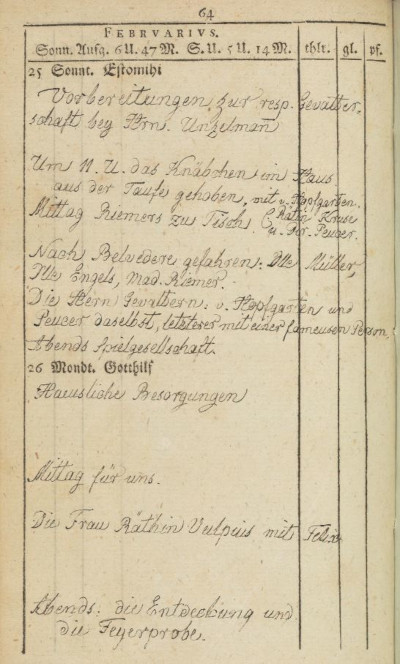 64
FEBRVARIVS.
Sonn. Aufg. 6 U. 47 M. S. U. 5 U. 14 M. thlr. gl. pf.
25 Sonnt. Estomihi
Vorbereitungen zur resp. Gevatter-
schaft bey Hrn. Unzelmañ
Um 11. U. das Knäbchen im Haus
aus der Taufe gehoben, mit v. Hopfgarten.
Mittag Riemers zu Tisch Räthin Kruse
u. Peucer.
Nach Belvedere gefahren: Dlle Müller,
Dlle Engels, Mad. Riemer.
Die Herrn Gevattern: v. Hopfgarten und
Peucer daselbst, letzterer mit einer fameusen Person.
Abends Spielgesellschaft.
26 Mondt. Gotthilf
Haeusliche Besorgungen
Mittag für uns.
Die Frau Räthin Vulpius mit Felix
Abends: die Entdeckung und
die Feyerprobe.